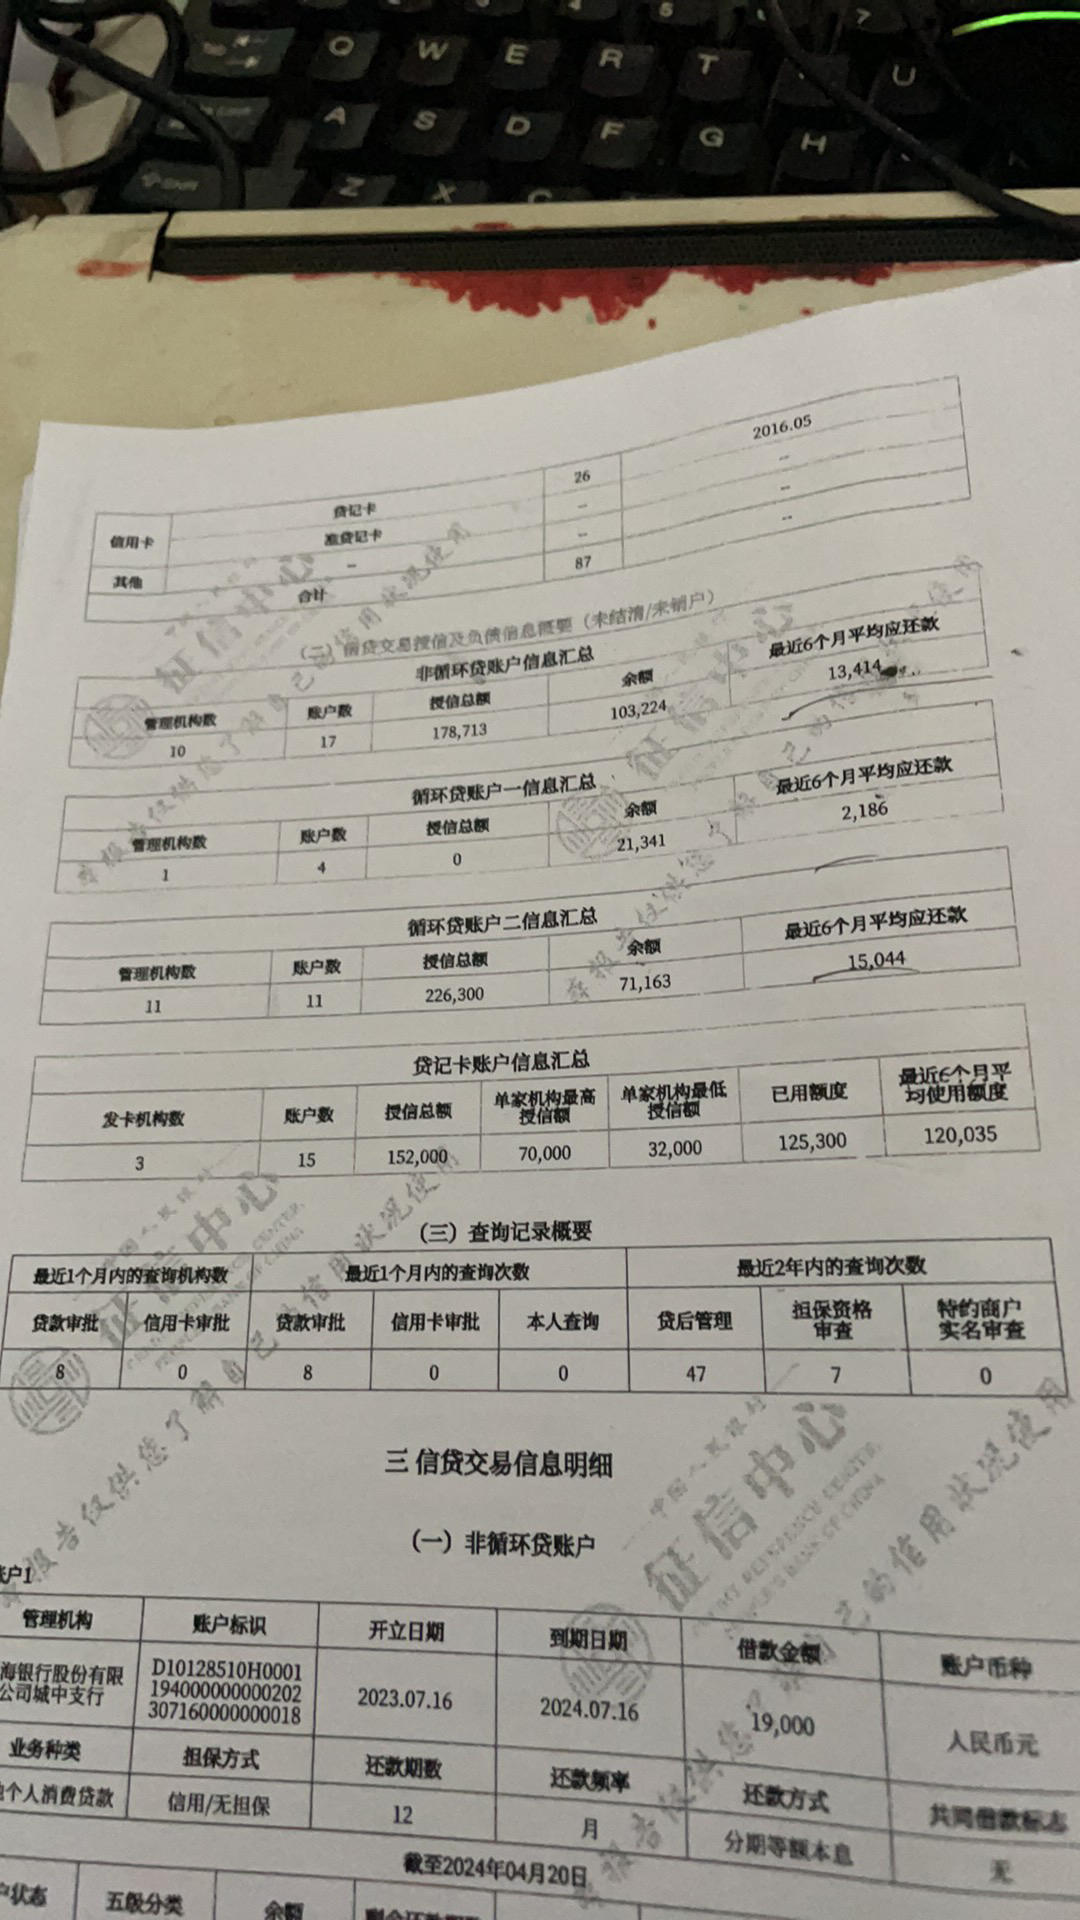 Q W E R T U
A S D F G H
Z X C
贷记卡 26 2016.05
信用卡 准贷记卡 -- --
其他 -- -- --
合计 87 --
（二）信贷交易授信及负债信息概要（未结清/未销户）
非循环贷账户信息汇总
管理机构数 账户数 授信总额 余额 最近6个月平均应还款
10 17 178,713 103,224 13,414
循环贷账户一信息汇总
管理机构数 账户数 授信总额 余额 最近6个月平均应还款
1 4 0 21,341 2,186
循环贷账户二信息汇总
管理机构数 账户数 授信总额 余额 最近6个月平均应还款
11 11 226,300 71,163 15,044
贷记卡账户信息汇总
发卡机构数 账户数 授信总额 单家机构最高授信额 单家机构最低授信额 已用额度 最近6个月平均使用额度
3 15 152,000 70,000 32,000 125,300 120,035
（三）查询记录概要
最近1个月内的查询机构数 最近1个月内的查询次数 最近2年内的查询次数
贷款审批 信用卡审批 贷款审批 信用卡审批 本人查询 贷后管理 担保资格审查 特约商户实名审查
8 0 8 0 0 47 7 0
三 信贷交易信息明细
（一）非循环贷账户
账户1
管理机构 账户标识 开立日期 到期日期 借款金额 账户币种
海银行股份有限公司城中支行 D10128510H0001194000000000202307160000000018 2023.07.16 2024.07.16 19,000 人民币元
业务种类 担保方式 还款期数 还款频率 还款方式 共同借款标志
个人消费贷款 信用/无担保 12 月 分期等额本息 无
截至2024年04月20日
户状态 五级分类 余额
中国人民银行
征信中心
CREDIT REFERENCE CENTER,
PEOPLE'S BANK OF CHINA
本报告仅供您了解自己的信用状况使用